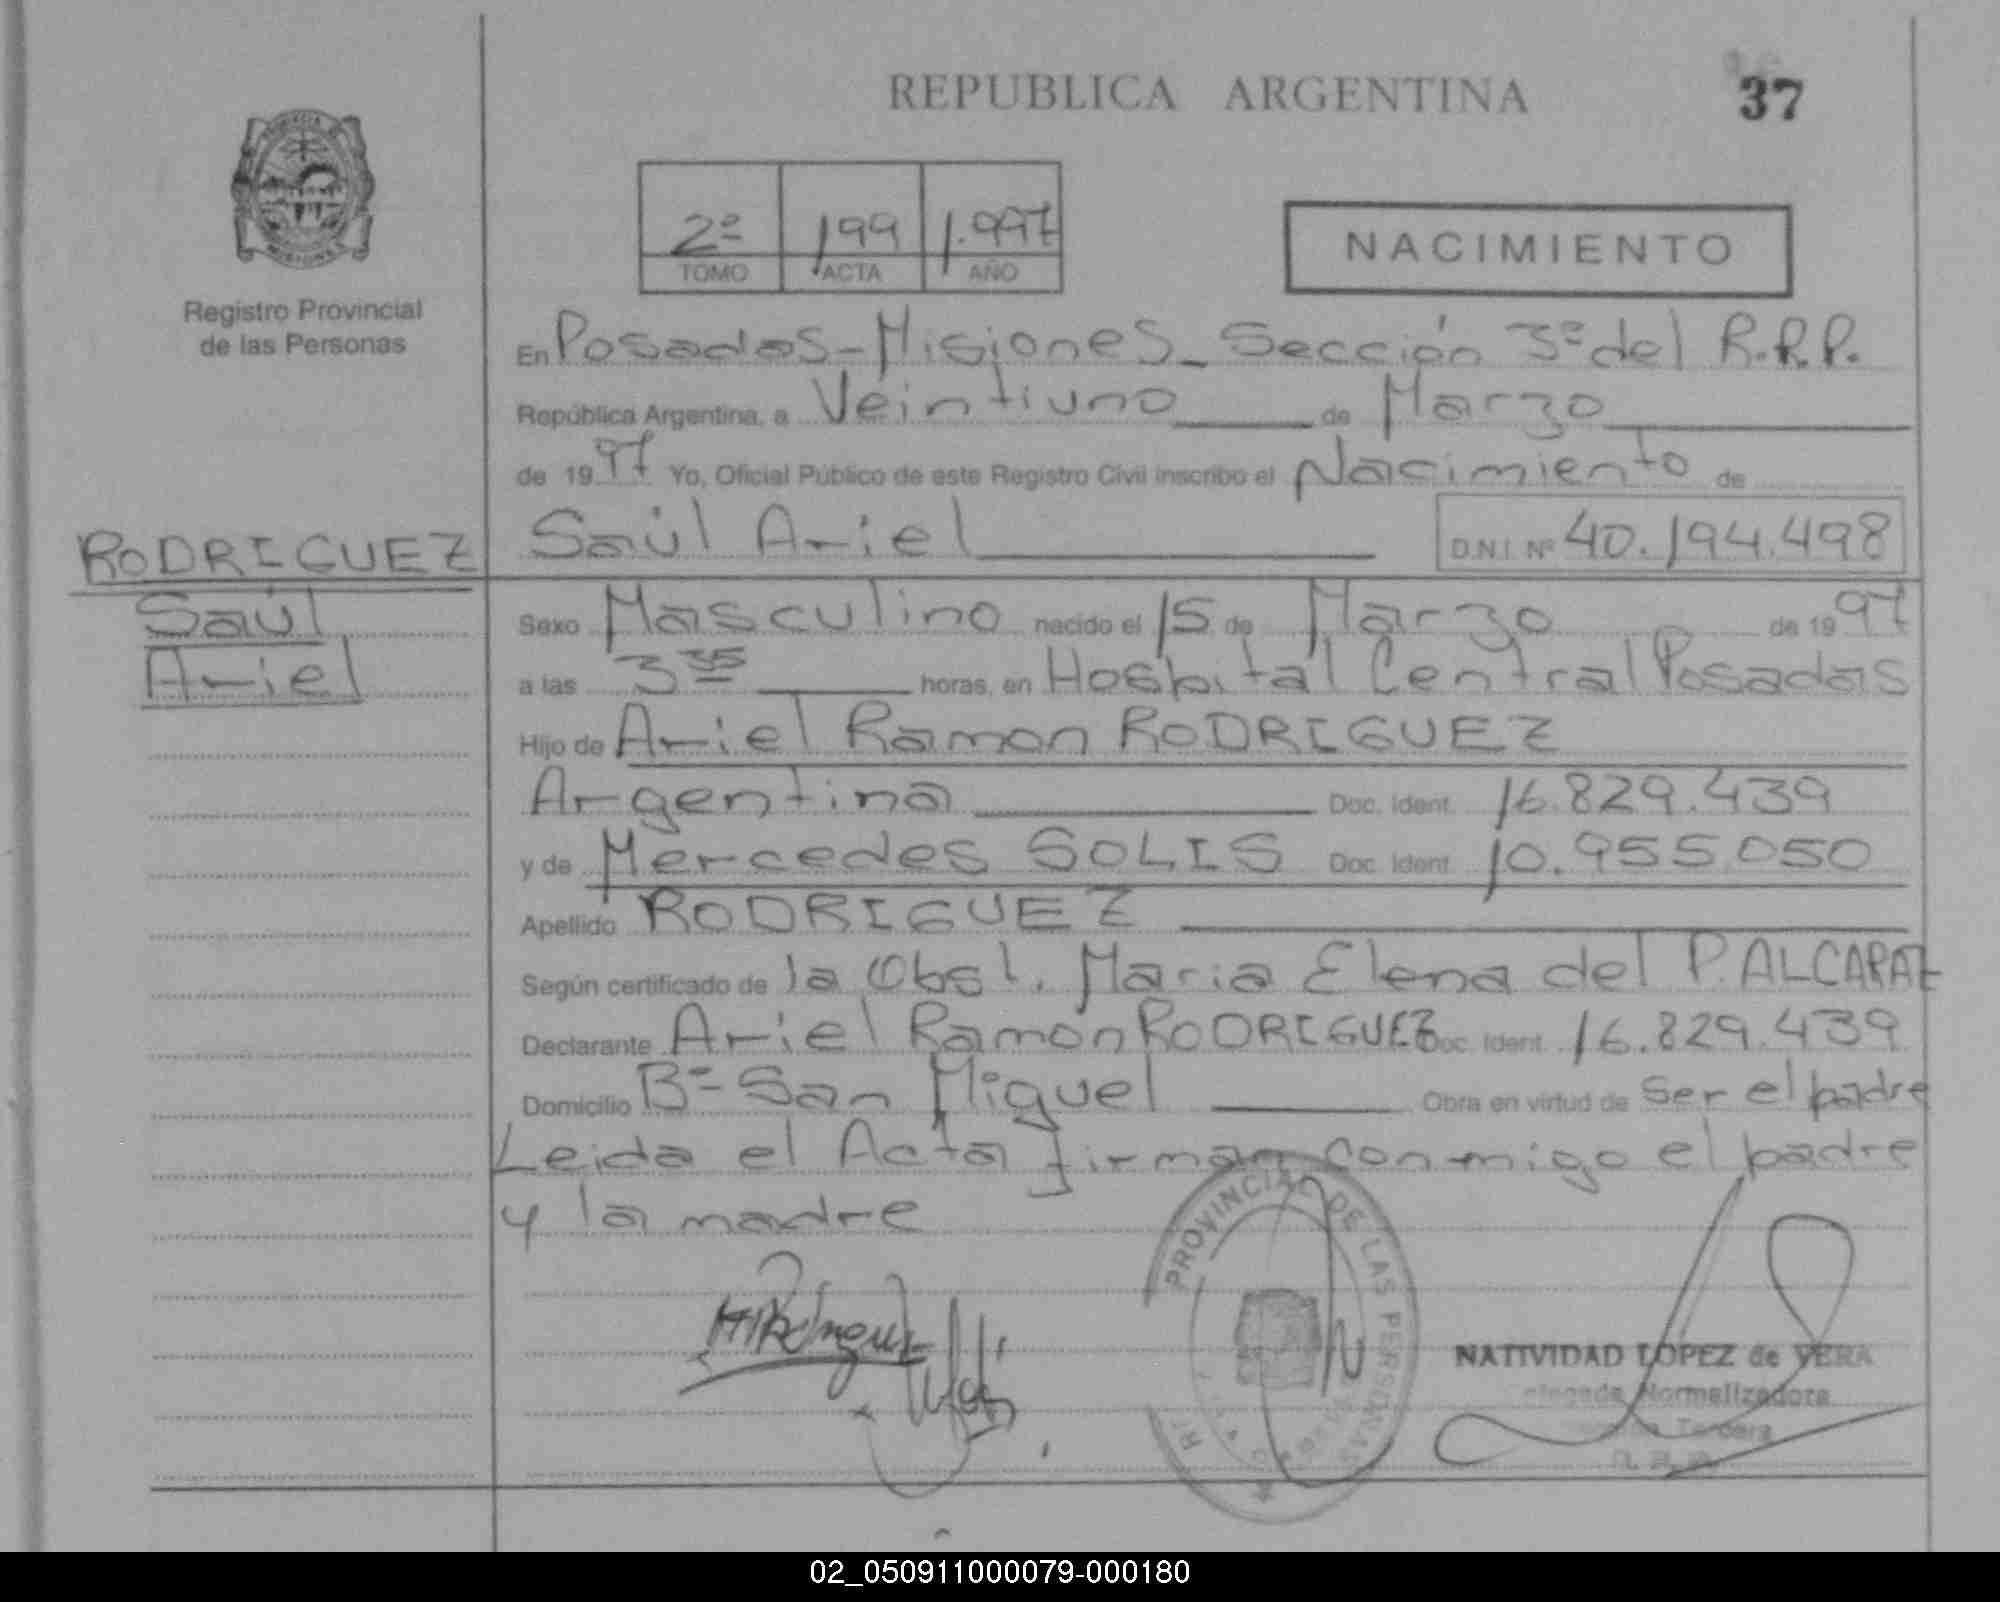 REPUBLICA ARGENTINA
37
Registro Provincial
de las Personas
2º 199 1.997
TOMO ACTA AÑO
NACIMIENTO
En Posadas-Misiones_Sección 3º del R.R.P.
República Argentina, a Veintiuno de Marzo
de 1997 Yo, Oficial Público de este Registro Civil inscribo el Nacimiento de
Saúl Ariel D.N.I. Nº 40.194.498
RODRIGUEZ
Saúl
Ariel
Sexo Masculino nacido el 15 de Marzo de 1997
a las 3 35 horas, en Hospital Central Posadas
Hijo de Ariel Ramon RODRIGUEZ
Argentina Doc. Ident. 16.829.439
y de Mercedes SOLIS Doc. Ident. 10.955.050
Apellido RODRIGUEZ
Según certificado de la Obst. Maria Elena del P. ALCARAZ
Declarante Ariel Ramón RODRIGUEZ Doc. Ident. 16.829.439
Domicilio Bº San Miguel Obra en virtud de ser el padre
Leida el Acta firman conmigo el padre
y la madre
PROVINCIAL DE LAS PERSONAS
NATIVIDAD LOPEZ de VERA
Delegada Normalizadora
Tercera
02_050911000079-000180